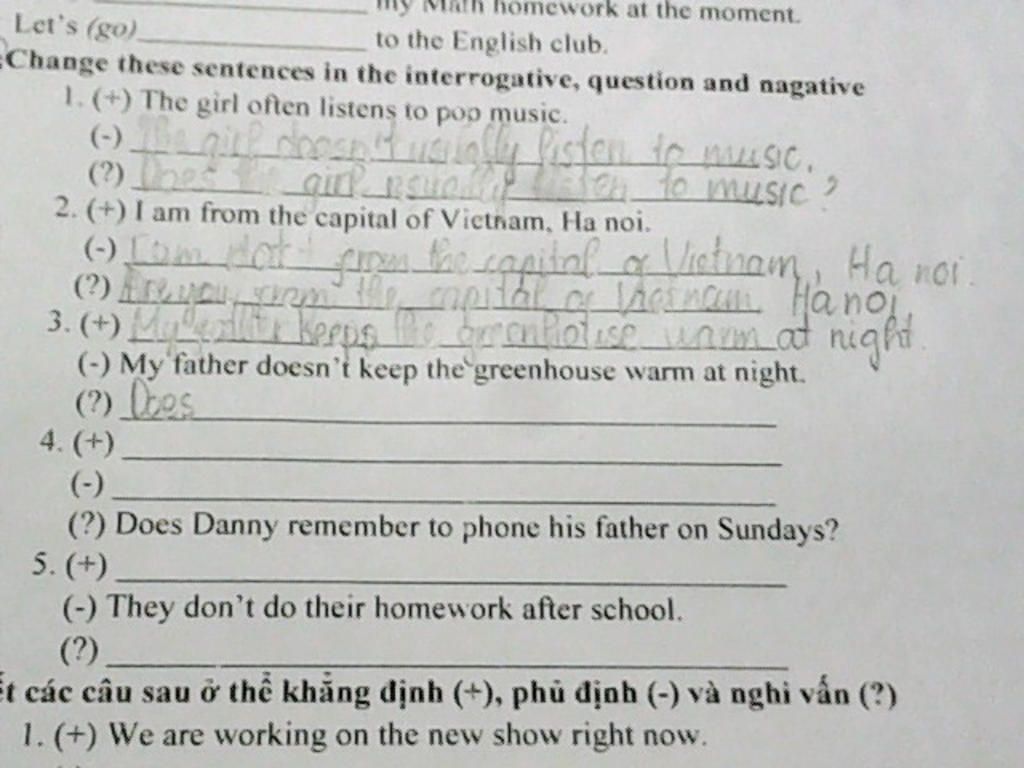 my Math homework at the moment.
Let's (go)____________ to the English club.
Change these sentences in the interrogative, question and nagative
1. (+) The girl often listens to pop music.
(-) The girl doesn't usually listen to music.
(?) Does the girl usually listen to music?
2. (+) I am from the capital of Vietnam, Ha noi.
(-) I am not from the capital of Vietnam, Ha noi.
(?) Are you from the capital of Vietnam Ha noi
3. (+) My father keeps the greenhouse warm at night.
(-) My father doesn't keep the greenhouse warm at night.
(?) Does
4. (+)
(-)
(?) Does Danny remember to phone his father on Sundays?
5. (+)
(-) They don't do their homework after school.
(?)
các câu sau ở thể khẳng định (+), phủ định (-) và nghi vấn (?)
1. (+) We are working on the new show right now.